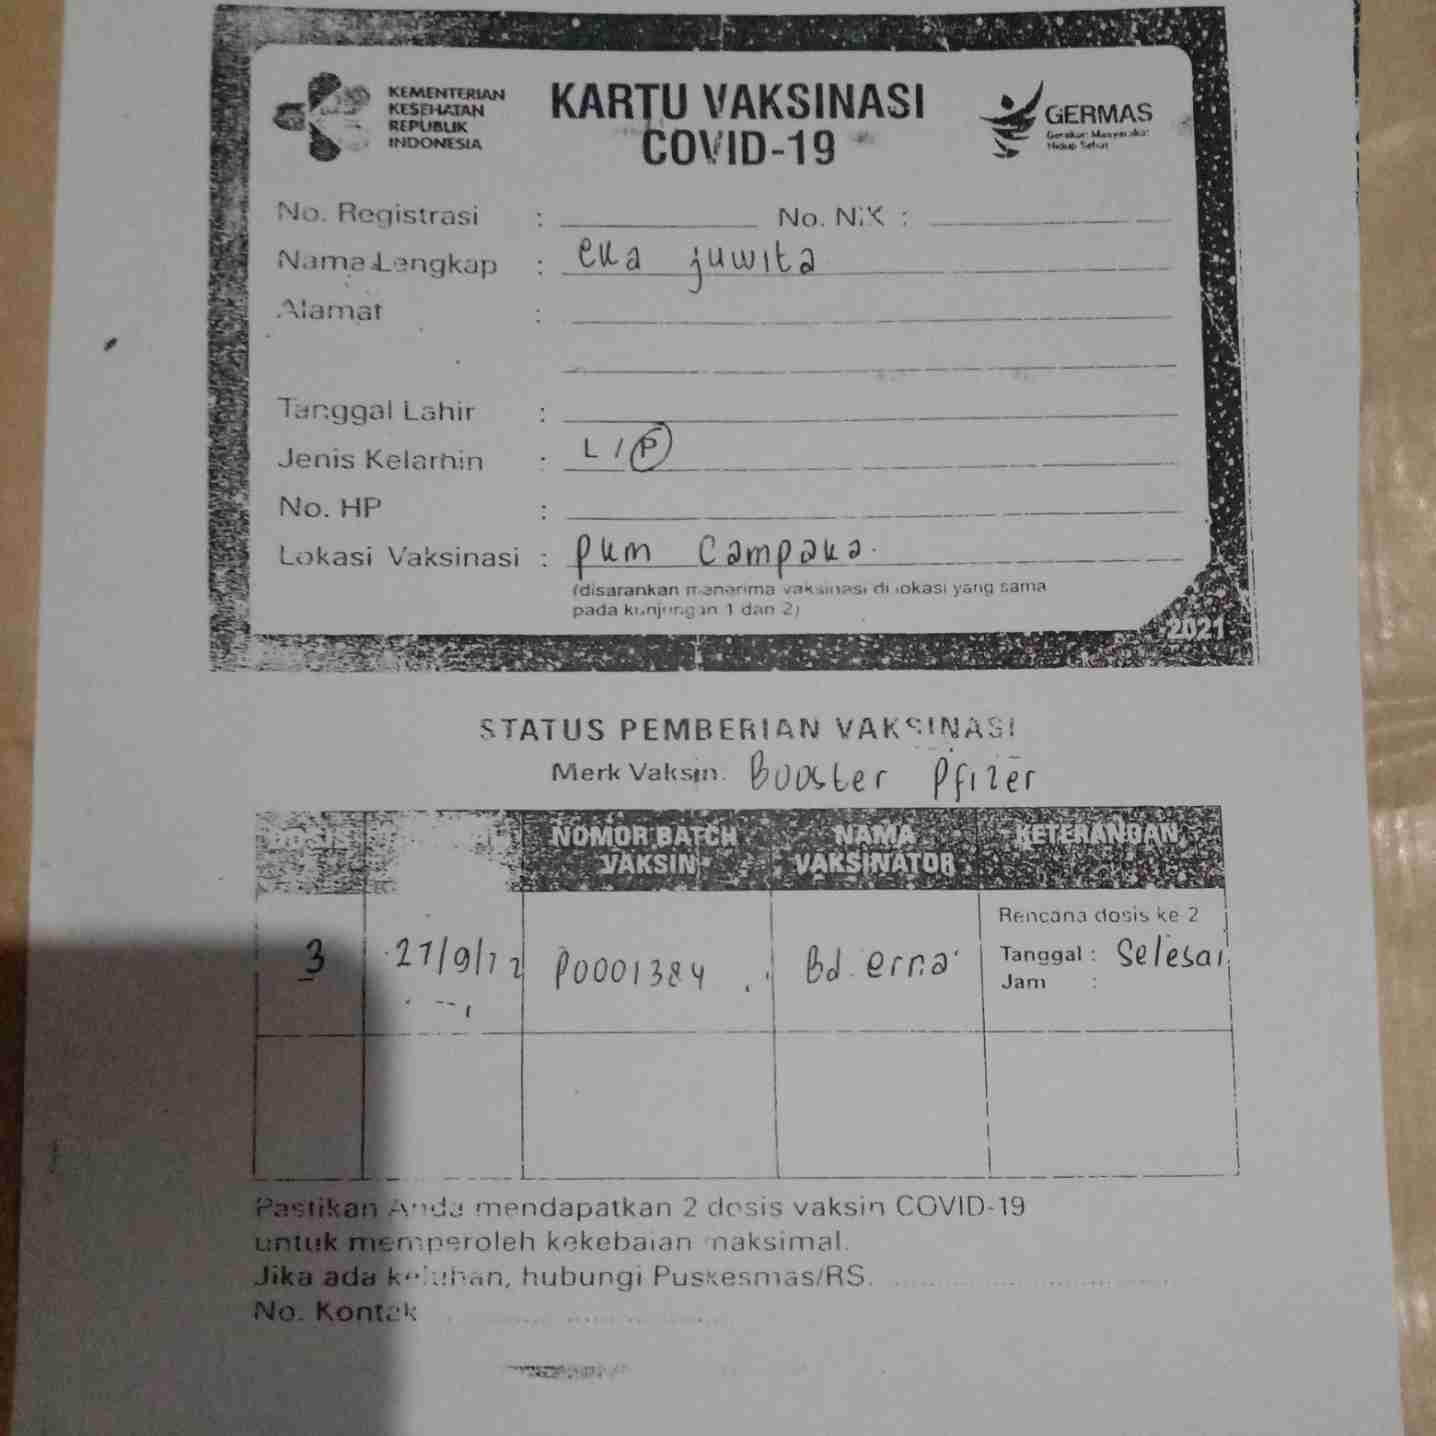 KEMENTERIAN
KESEHATAN
REPUBLIK
INDONESIA
KARTU VAKSINASI
COVID-19
GERMAS
Gerakan Masyarakat
Hidup Sehat
No. Registrasi : No. NIK :
Nama Lengkap : eka juwita
Alamat :
Tanggal Lahir :
Jenis Kelamin : L / P
No. HP :
Lokasi Vaksinasi : pkm Campaka.
(disarankan menerima vaksinasi di lokasi yang sama
pada kunjungan 1 dan 2)
2021
STATUS PEMBERIAN VAKSINASI
Merk Vaksin. Booster Pfizer
NOMOR BATCH VAKSIN NAMA VAKSINATOR KETERANGAN
Rencana dosis ke 2
3 P0001384 Bd. erna Tanggal : Selesai
Jam :
Pastikan Anda mendapatkan 2 dosis vaksin COVID-19
untuk memperoleh kekebalan maksimal.
Jika ada keluhan, hubungi Puskesmas/RS.
No. Kontak